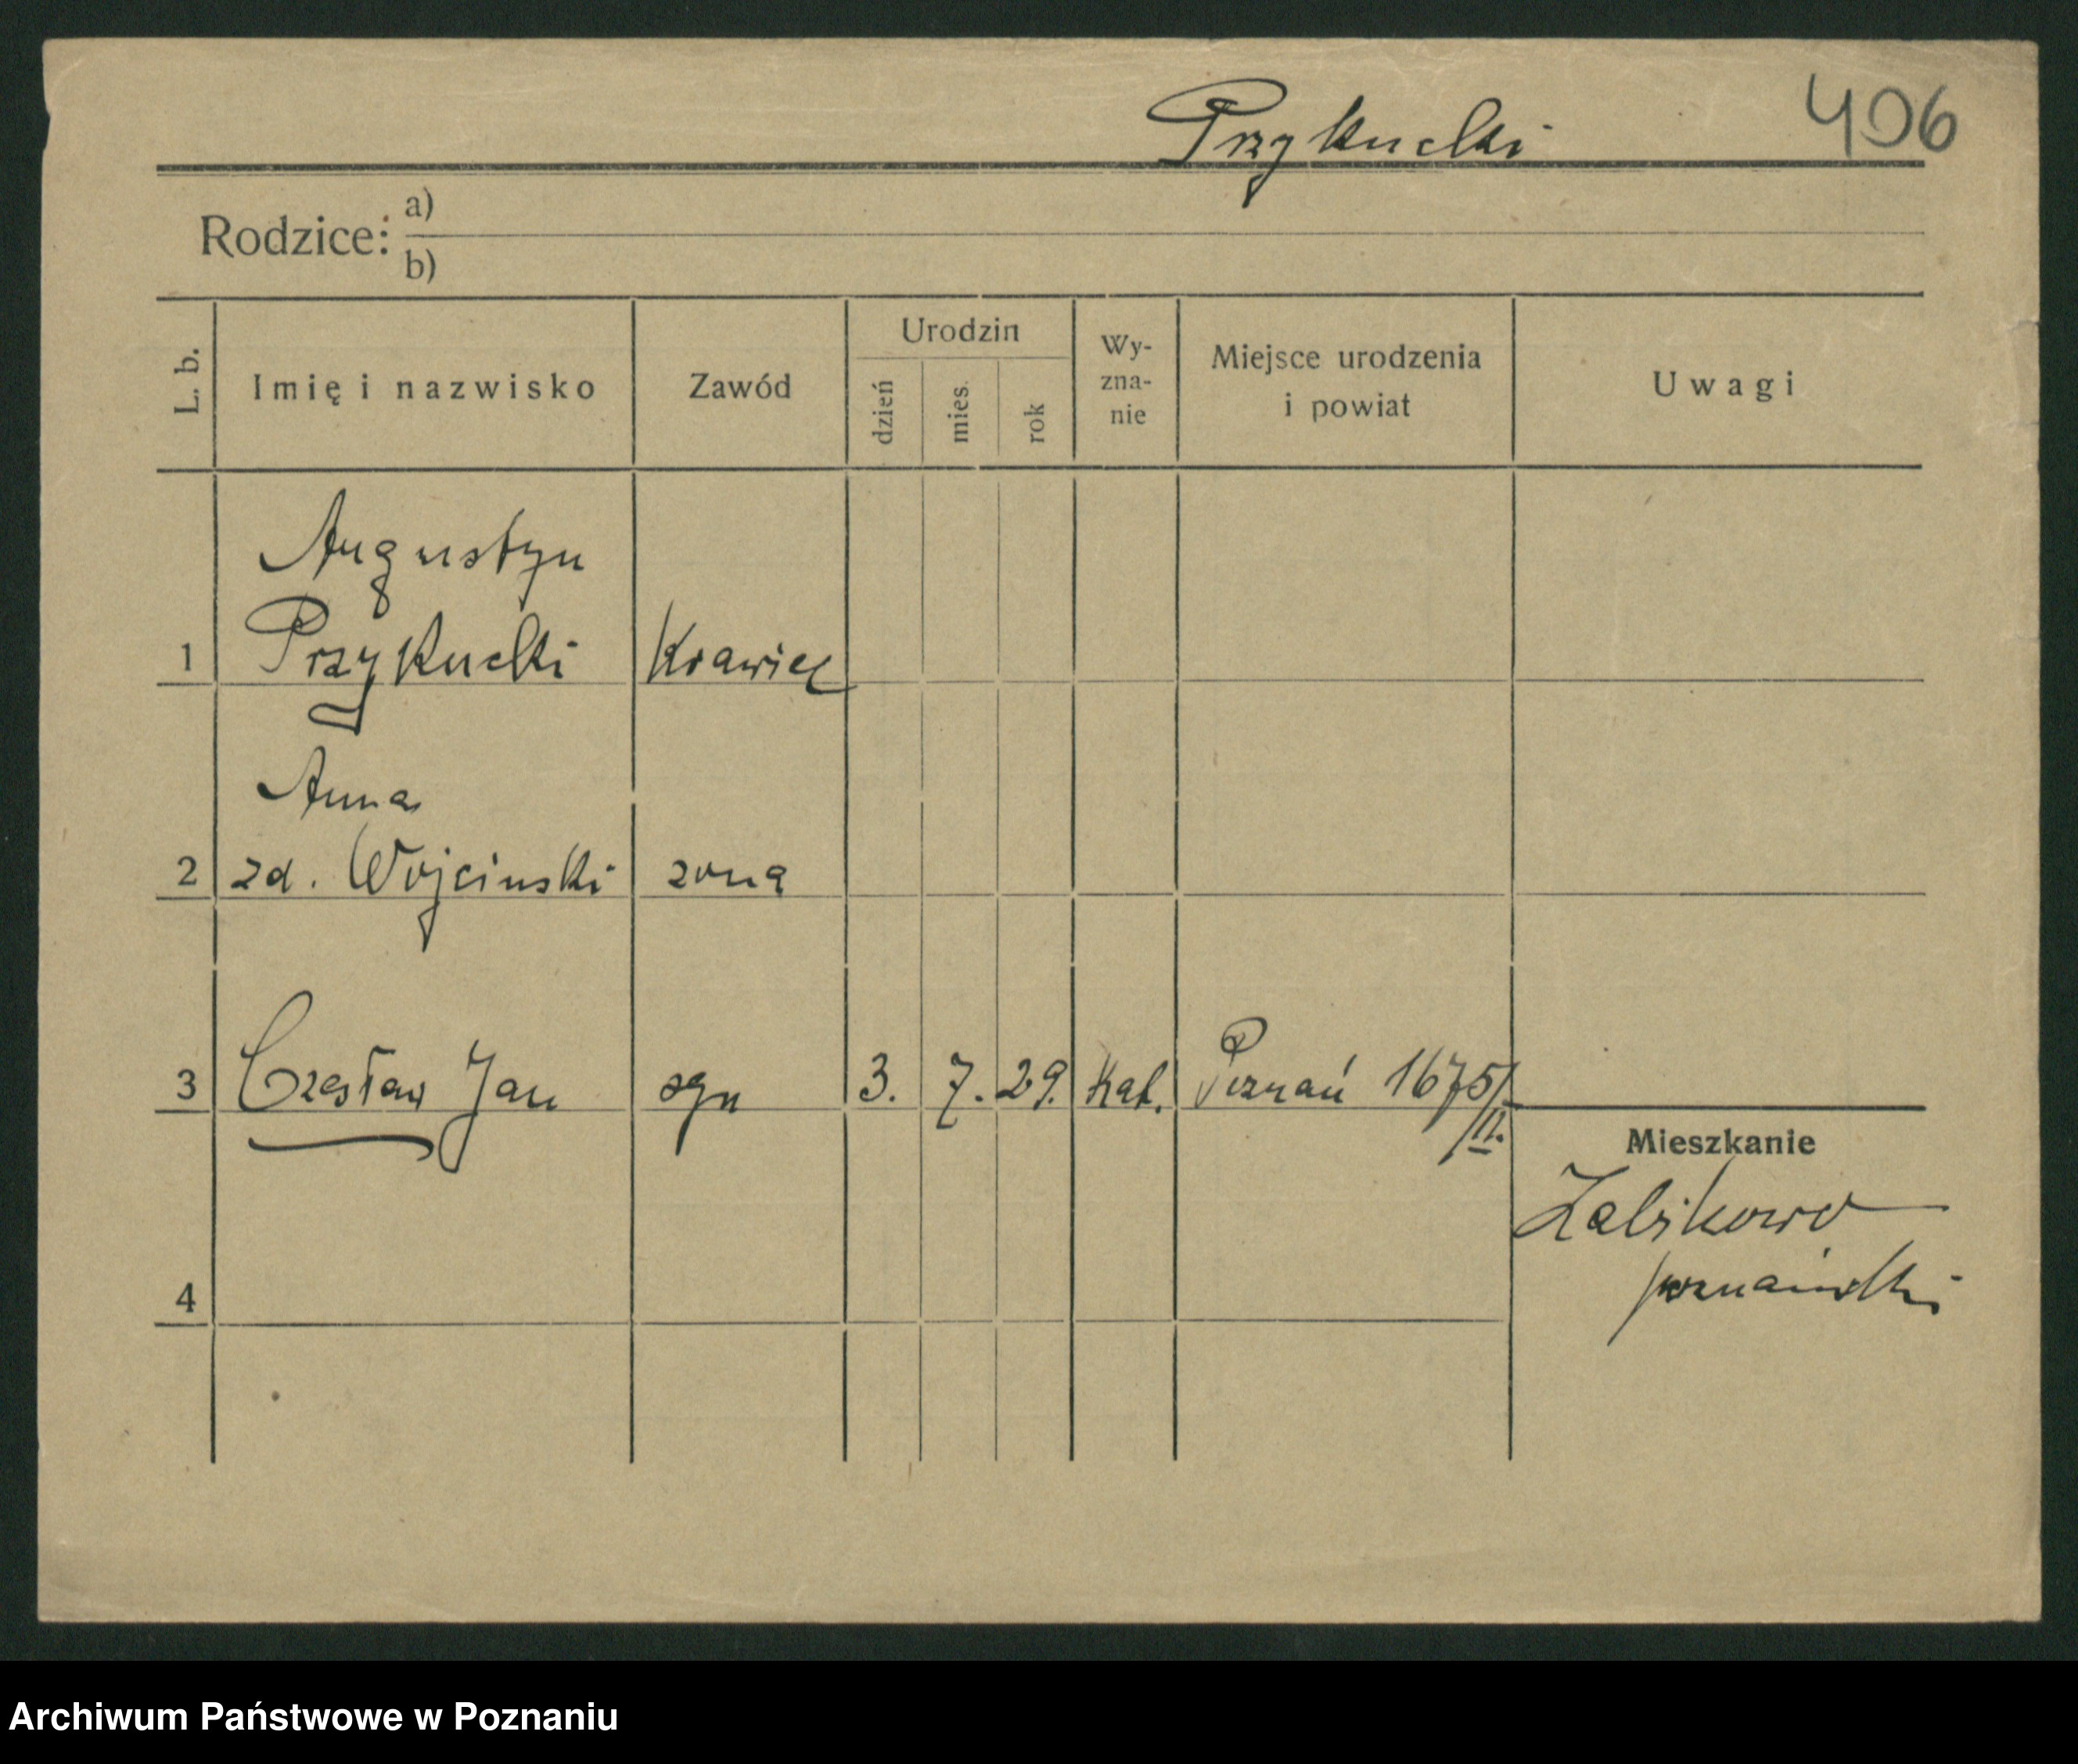 Przykucki 406
Rodzice: a)
b)
L. b. Imię i nazwisko Zawód Urodzin dzień mies. rok Wy-zna-nie Miejsce urodzenia i powiat Uwagi
Augustyn
1 Przykucki Krawiec
Anna
2 zd. Wojcinski zona
3 Czesław Jan syn 3. 7. 29. Kat. Poznań 1675/
/II.
Mieszkanie
Zabikowo
poznański
4
Archiwum Państwowe w Poznaniu